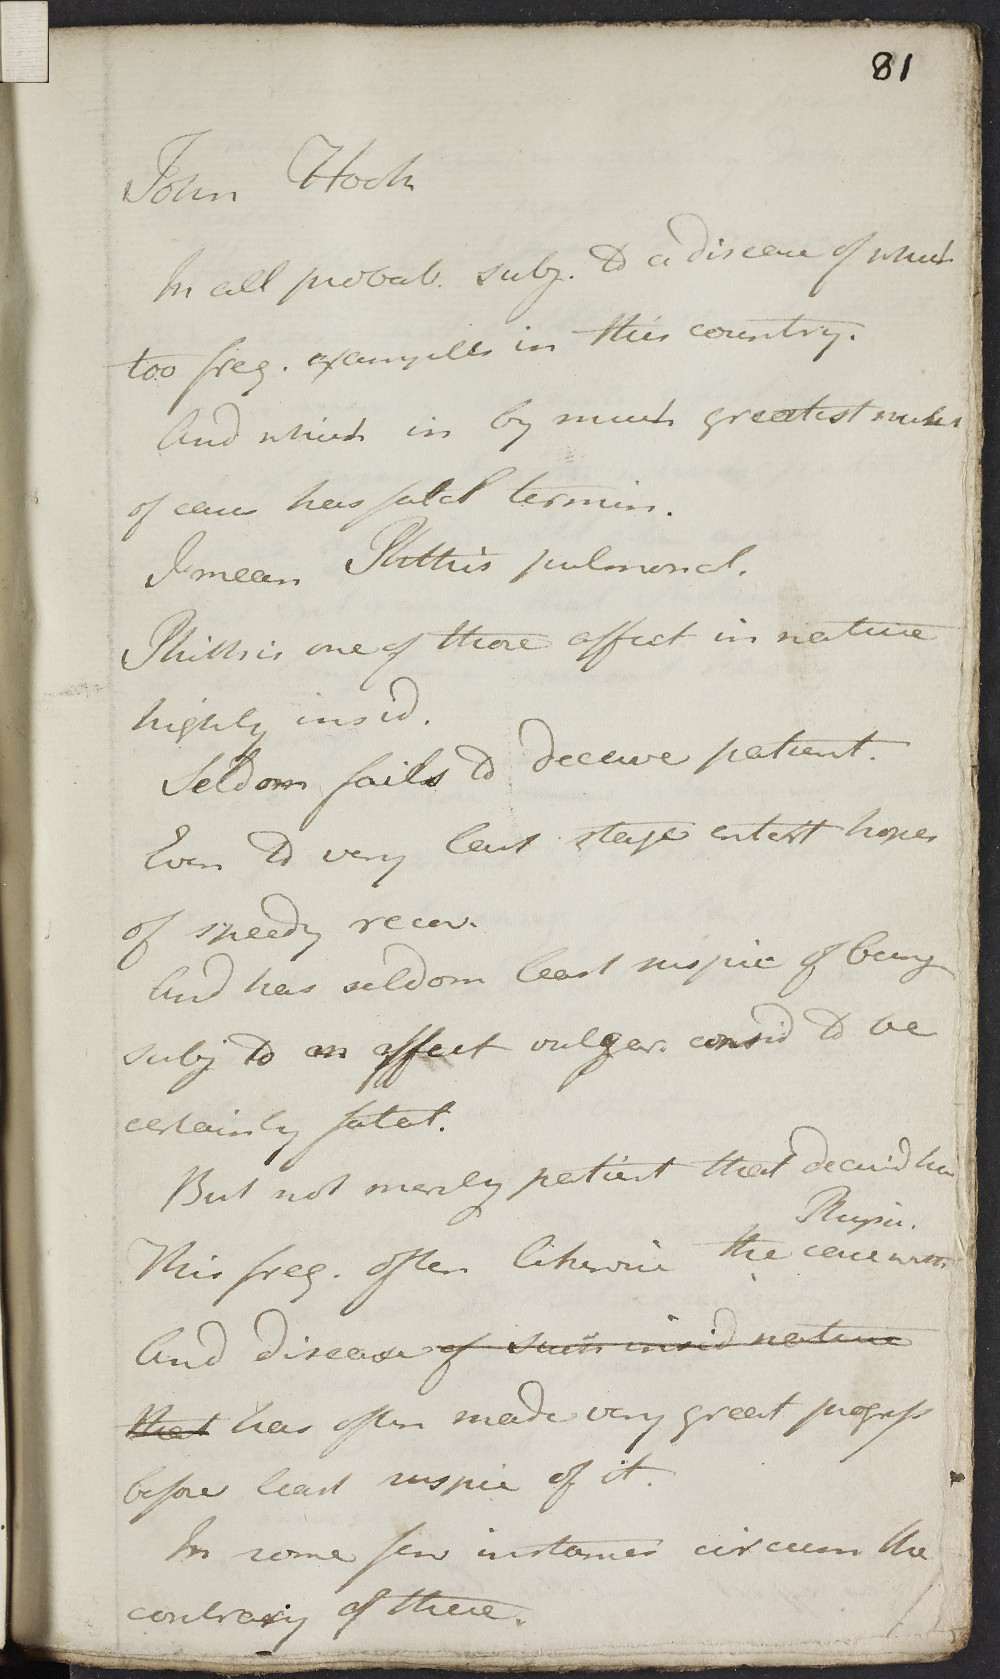 81
John Hoch
In all probab. subj. to a disease of which
too freq. examples in this country.
And which in by much greatest numb
of cases has fatal termin.
I mean Phthisis pulmonal.
Phthisis one of those affect in nature
highly insid.
Seldom fails to deceive patient.
Even to very last stage entert hopes
of speedy recov.
And has seldom least suspic of being
subj to an affect vulgar. consid to be
certainly fatal.
But not merely patient that deceivd here
Physic.
This freq. often likewise the case with
And disease of such insid nature
that has often made very great progress
before least suspic of it.
In some few instances circum the
contrary of these.